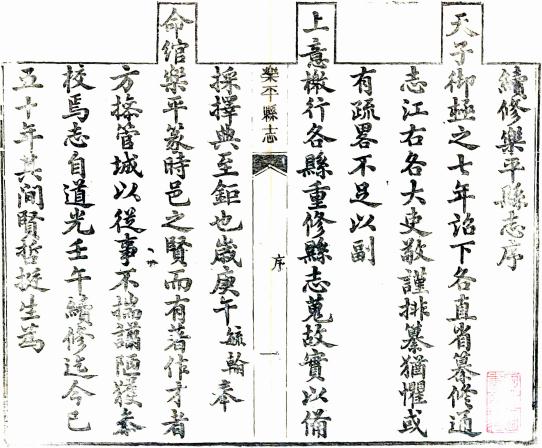 續修樂平縣志序
天子御極之七年詔下各直省纂修通
志江右各大吏敬謹排纂猶懼或
有疏畧不足以副
上意檄行各縣重修縣志蒐故實以備
樂平縣志
序
一
採擇典至鉅也歲庚午毓輪奉
命綰樂平篆時邑之賢而有著作才者
方管城以從事不揣譾陋獲叅
校焉志自道光壬午續修迄今已
五十年其間賢哲挺生為